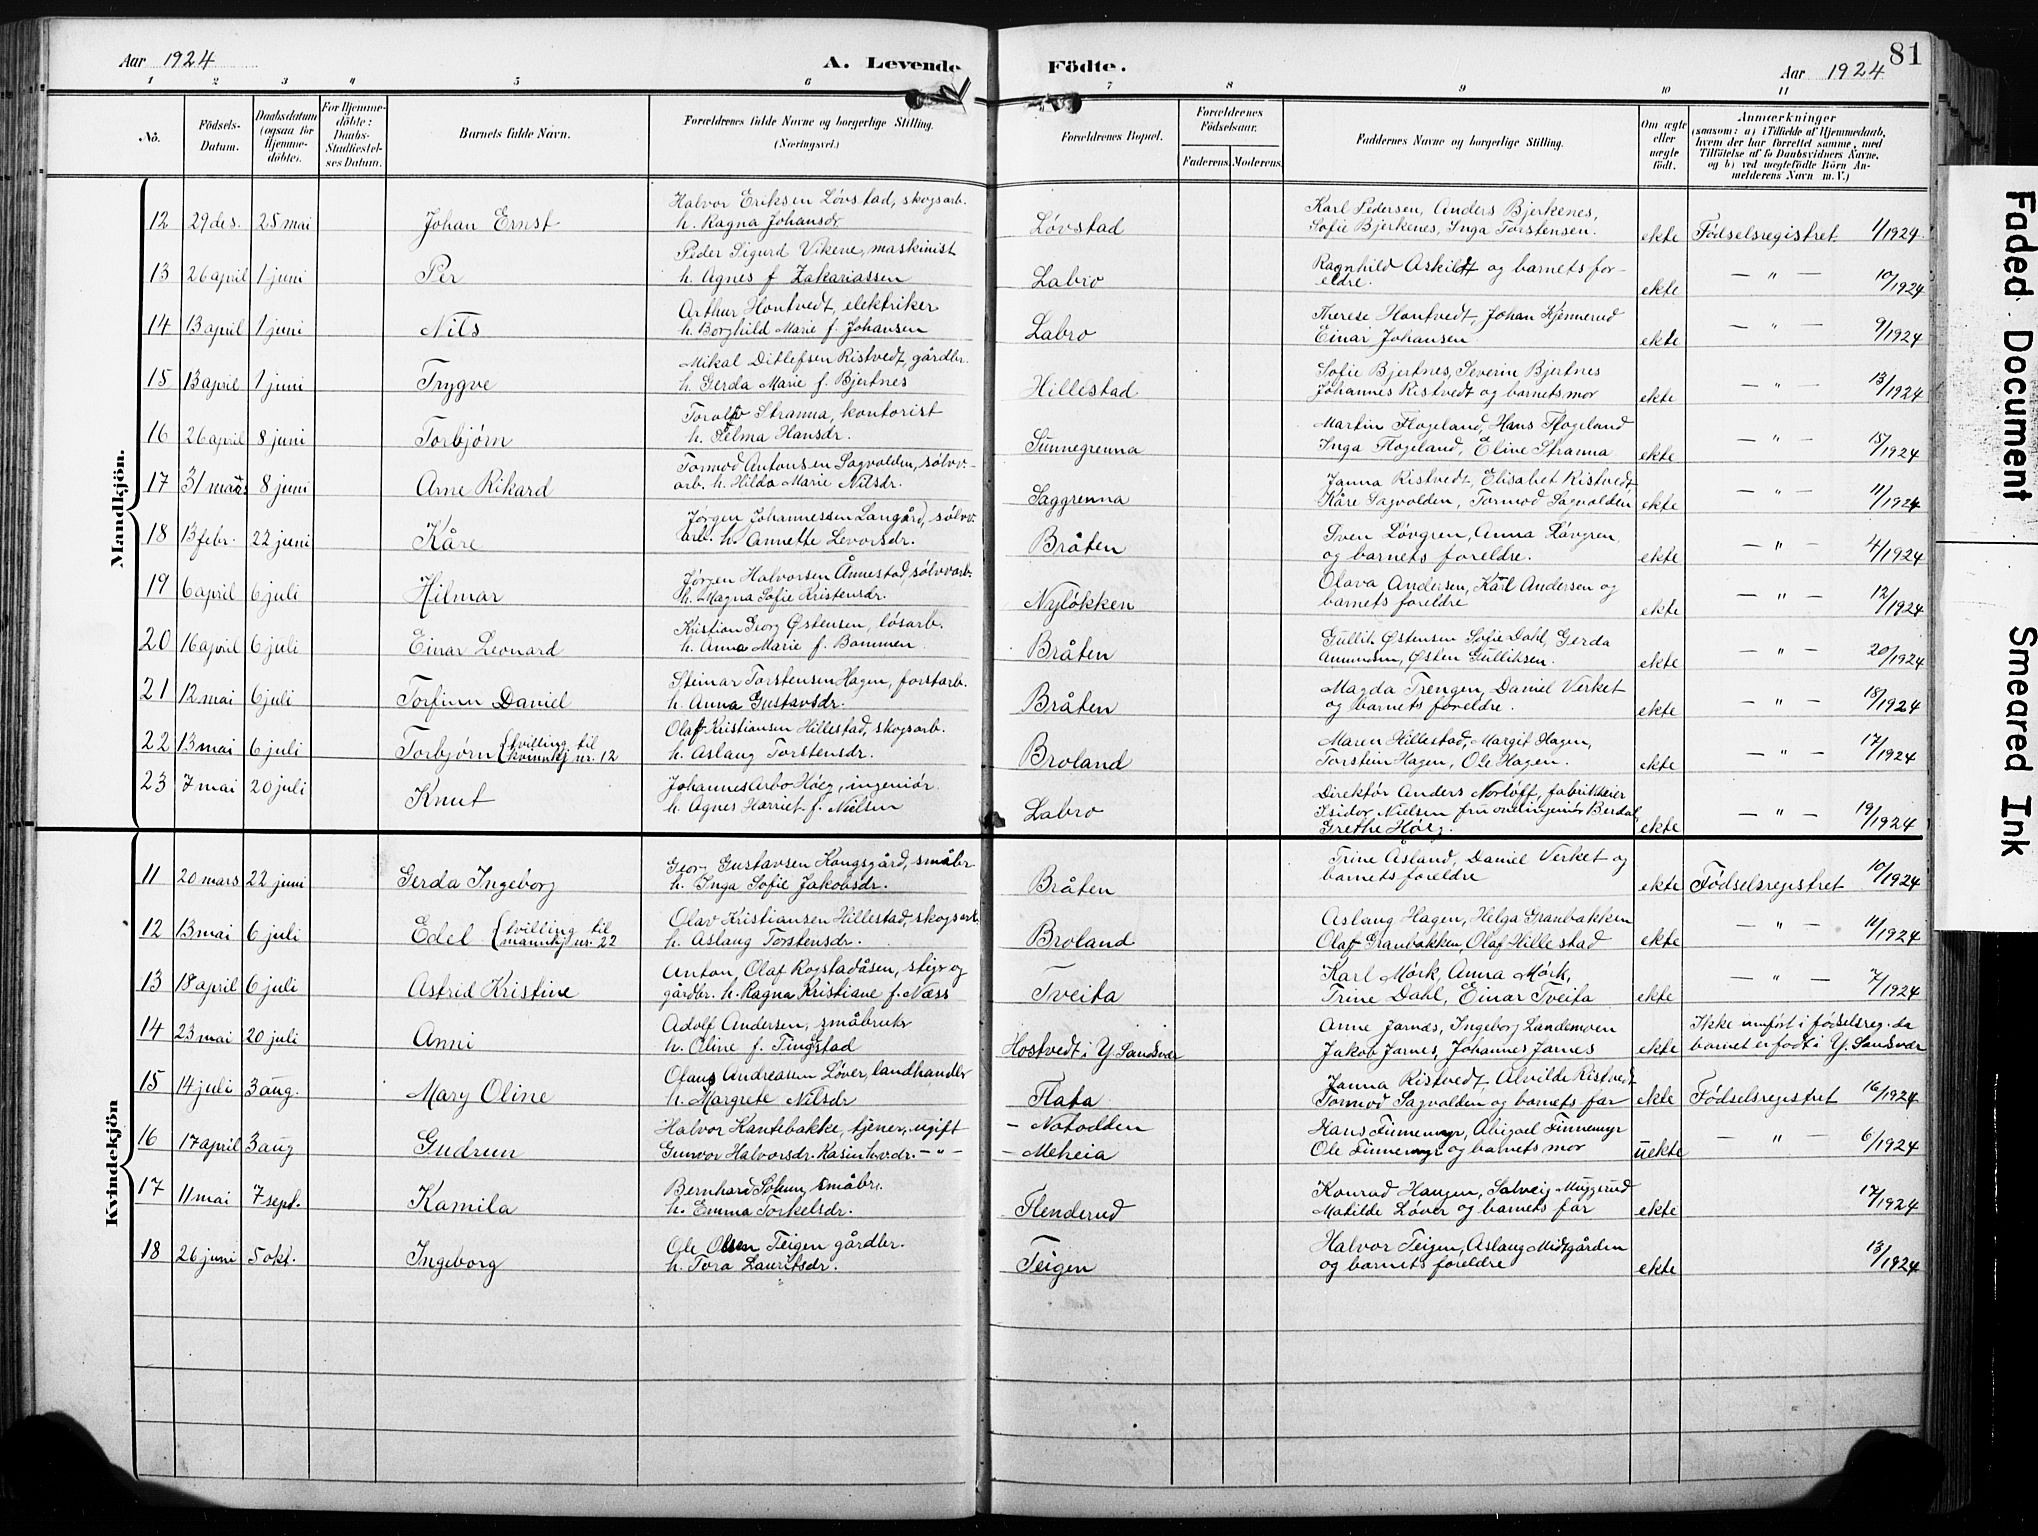 Aar 1924
A. Levende Födte.
Aar 1924
81
1 2 3 4 5 6 7 8 9 10 11
No.
Födsels-Datum.
Daabsdatum (ogsaa for Hjemmedöbte).
For Hjemmedöbte: Daabs-Stadfæstelses Datum.
Barnets fulde Navn.
Forældrenes fulde Navne og borgerlige Stilling. (Næringsvei.)
Forældrenes Bopæl.
Forældrenes Födselsaar.
Faderens. Moderens.
Faddernes Navne og borgerlige Stilling.
Om ægte eller uægte födt.
Anmærkninger
(saasom: a) i Tilfælde af Hjemmedaab, hvem der har forrettet samme, med Tilföielse af to Daabsvidners Navne, og b) ved uægtefödte Börn Anmelderens Navn m. V.)
Mandkjön.
12 29 des. 25 mai Johan Ernst Halvor Eriksen Løvstad, skogsarb. h. Ragna Johansdr Løvstad Karl Pedersen, Anders Bjerkenes, Sofie Bjerkenes, Inga Torstensen. ekte Fødselsregistret 1/1924.
13 26 april 1 juni Per Peder Sigurd Vikene, maskinist h. Agnes f Zakariassen Labro Ragnhild Askildt og barnets foreldre. ekte — " — 10/1924
14 13 april 1 juni Nils Arthur Hontvedt, elektriker h. Borghild Marie f. Johansen Labro Therese Hontvedt, Johan Kjennerud Einar Johansen ekte — " — 9/1924
15 13 april 1 juni Trygve Mikal Ditlefsen Ristvedt, gårdbr. h. Gerda Marie f. Bjertnes Hillestad Sofie Bjertnes, Severin Bjertnes Johannes Ristvedt og barnets mor ekte — " — 13/1924
16 26 april 8 juni Torbjørn Torolf Stranna, kontorist h. Selma Hansdr. Sunnegrenna Martin Flogeland, Hans Flogeland Inga Flogeland, Eline Stranna ekte — " — 15/1924
17 31 mars 8 juni Arne Rikard Tormod Antonsen Sagvolden, sølvv.-arb. h. Hilda Marie Nilsdr. Saggrenna Janna Ristvedt, Elisabet Ristvedt Kåre Sagvolden, Tormod Sagvolden ekte — " — 11/1924
18 13 febr. 22 juni Kåre Jørgen Johannessen Langård, sølvv. arb. h. Annette Levorsdr. Bråten Sven Løvgren, Anna Løvgren og barnets foreldre. ekte — " — 4/1924
19 6 april 6 juli Hilmar Jørgen Halvorsen Ånnestad, sølvvarb. h. Magna Sofie Kristensdr. Nyløkken Olava Andersen, Karl Andersen og barnets foreldre ekte — " — 12/1924
20 16 april 6 juli Einar Leonard Kristian Georg Østensen, løsarb. h. Anna Marie f. Bommen Bråten Gullik Østensen Sofie Dahl, Gerda Ammundsen, Østen Gulliksen. ekte — " — 20/1924
21 12 mai 6 juli Torfinn Daniel Steinar Torstensen Hagen, forstarb. h. Anna Gustavsdr. Bråten Magda Trengen, Daniel Verket og barnets foreldre. ekte — " — 18/1924
22 13 mai 6 juli Torbjørn (tvilling til kvinnkj nr. 12 Olaf Kristiansen Hillestad, skogsarb. h. Aslaug Torstensdr. Broland Maren Hillestad, Margit Hagen, Torstein Hagen, Ole Hagen. ekte — " — 17/1924
23 7 mai 20 juli Knut Johannes Arbo Høeg, ingeniør. h. Agnes Harriet f. Nielsen Labro Direktør Anders Norløff, fabrikkeier Isidor Nielsen fru overingeniør Berdal, Grethe Høeg. ekte — " — 19/1924
Kvindekjön
11 20 mars 22 juni Gerda Ingeborg Georg Gustavsen Kongsgård, småbr h. Inga Sofie Jakobsdr. Bråten Trine Åsland, Daniel Verket og barnets foreldre ekte Fødselsregistret 10/1924
12 13 mai 6 juli Edel (tvilling til mannkj nr. 22 Olav Kristiansen Hillestad, skogsarb. h. Aslaug Torstensdr. Broland Aslaug Hagen, Helga Granbakken Olaf Granbakken, Olaf Hillestad ekte — " — 11/1924
13 18 april 6 juli Astrid Kristine Anton Olaf Rogstadåsen, stigr og gårdbr. h. Ragna Kristiane f. Næss Tveita Karl Mørk, Anna Mørk, Trine Dahl, Einar Tveita ekte — " — 7/1924
14 23 mai 20 juli Anni Adolf Andersen, småbruks h. Oline f. Tingstad Hostvedt i Y. Sandsvær Anne Jarnes, Ingeborg Landemoen Jakob Jarnes, Johannes Jarnes ekte Ikke innført i fødselsreg. da barnet er født i Y. Sandsvær
15 14 juli 3 aug. Mary Oline Olaus Andreasen Løver, landhandler h. Margrete Nilsdr Flata Janna Ristvedt, Alvilde Ristvedt Tormod Sagvolden og barnets far ekte Fødselsregistret 16/1924
16 17 april 3 aug Gudrun Halvor Kantebakke, tjener, ugift Gunvor Halvorsdr. — " — - Notodden - Meheia Hans Finnemyr, Abigael Finnemyr Ole Finnemyr og barnets mor uekte — " — 6/1924
17 11 mai 7 sept. Kamila Bernhard småbr. h. Emma Torkelsdr. Flenderud Konrad Haugen, Solveig Muggerud Matilde Løver og barnets far ekte 17/1924
18 26 juni 5 okt. Ingeborg Ole Olsen Teigen gårdbr. h. Tora Lauritsdr. Teigen Halvor Teigen, Aslaug Midtgården og barnets foreldre ekte 13/1924
Faded Document
Smeared Ink